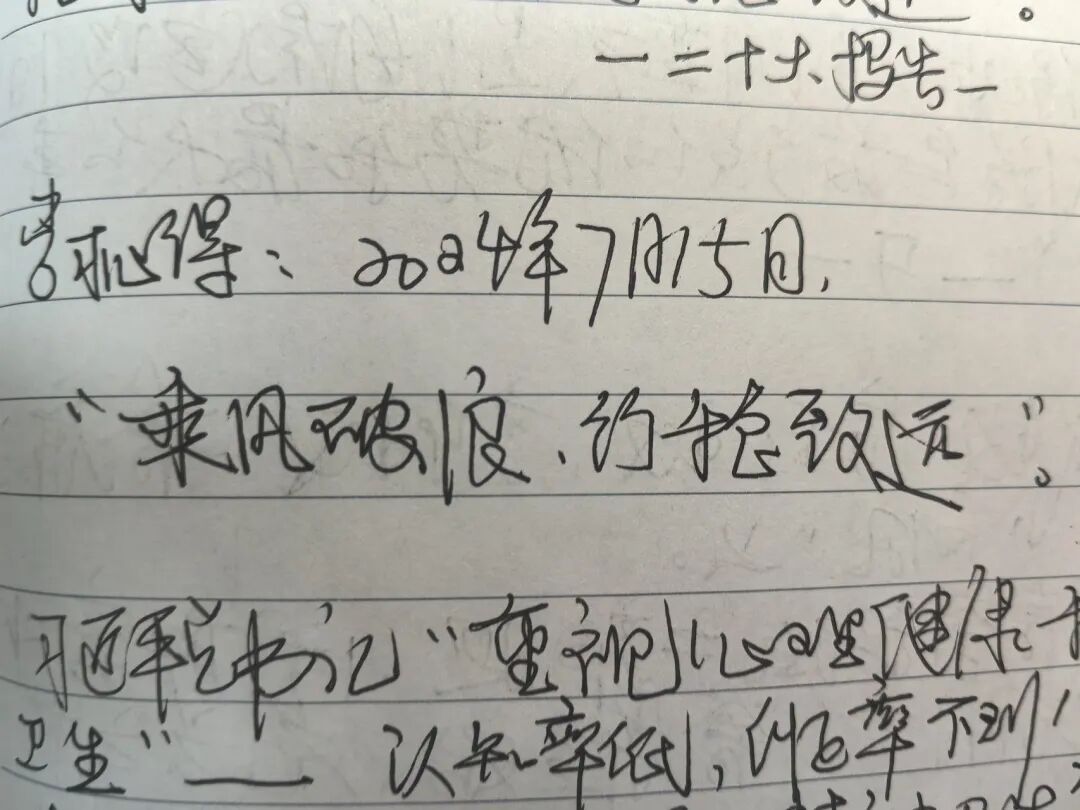 —二十大报告—
学习心得：2024年7月15日.
“乘风破浪、行稳致远”。
习近平总书记“重视心理健康
卫生”——认知率低，识率不到